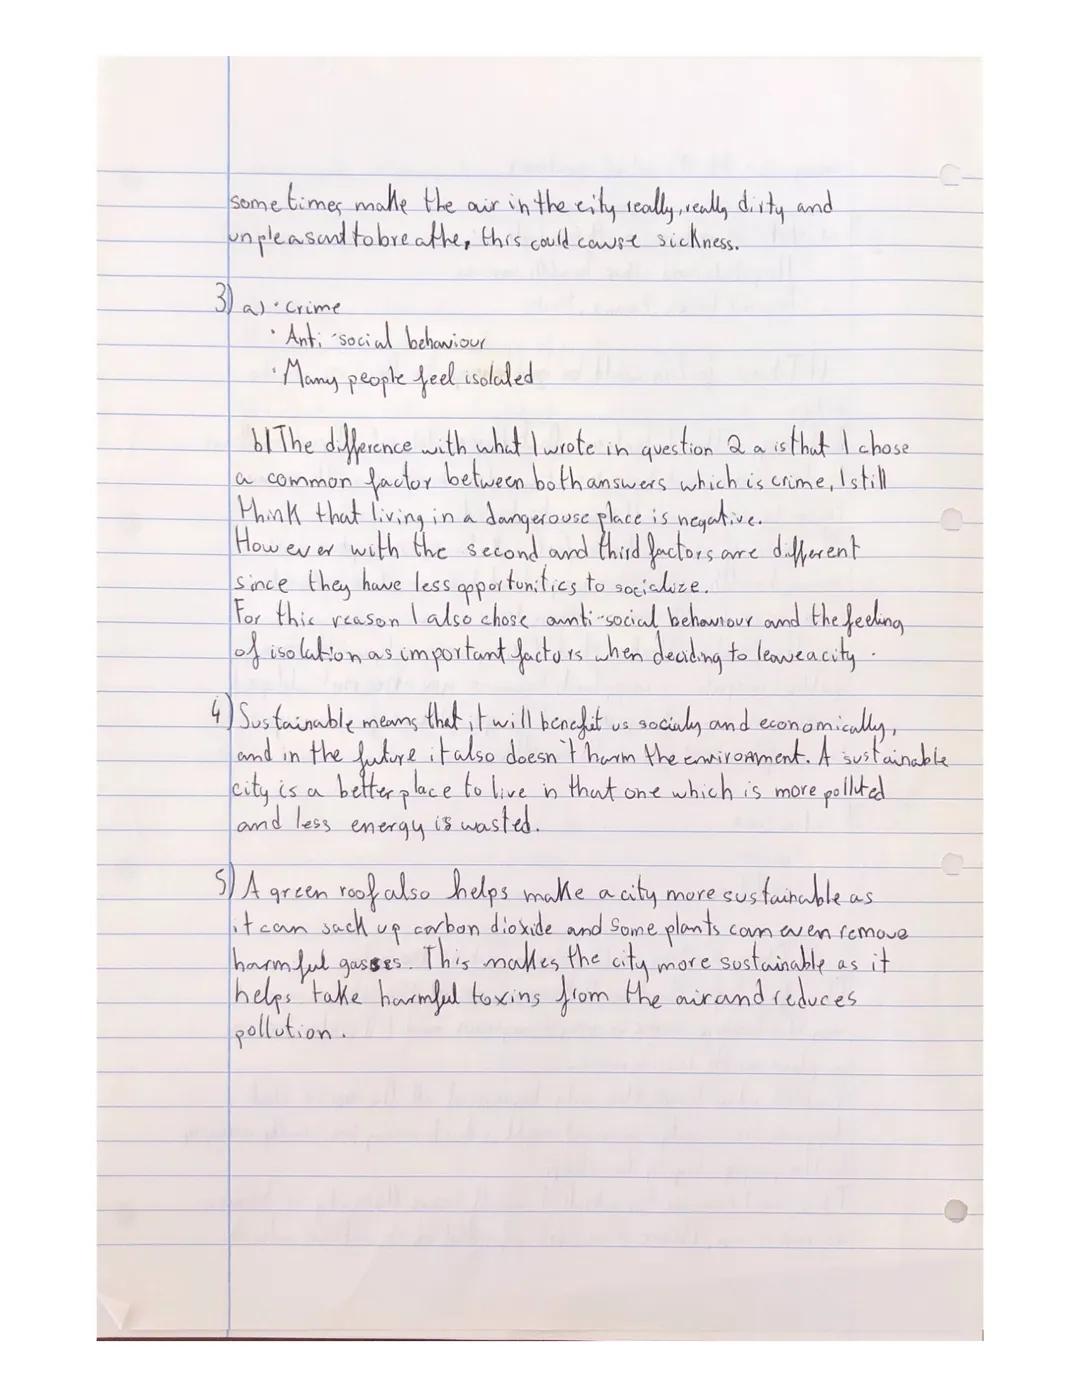 sometimes make the air in the city really, really dirty and
unpleasant to breathe, this could cause sickness.
3) a) · Crime
· Anti-social behaviour
· Many people feel isolated
b) The difference with what I wrote in question 2 a is that I chose
a common factor between both answers which is crime, I still
think that living in a dangerouse place is negative.
However with the second and third factors are different
since they have less opportunities to socialize.
For this reason I also chose anti-social behaviour and the feeling
of isolation as important factors when deciding to leave a city.
4) Sustainable means that it will benefit us socialy and economically,
and in the future it also doesn't harm the environment. A sustainable
city is a better place to live in that one which is more polluted
and less energy is wasted.
5) A green roof also helps make a city more sustainable as
it can sack up carbon dioxide and some plants can even remove
harmful gasses. This makes the city more sustainable as it
helps take harmful toxins from the air and reduces
pollution.